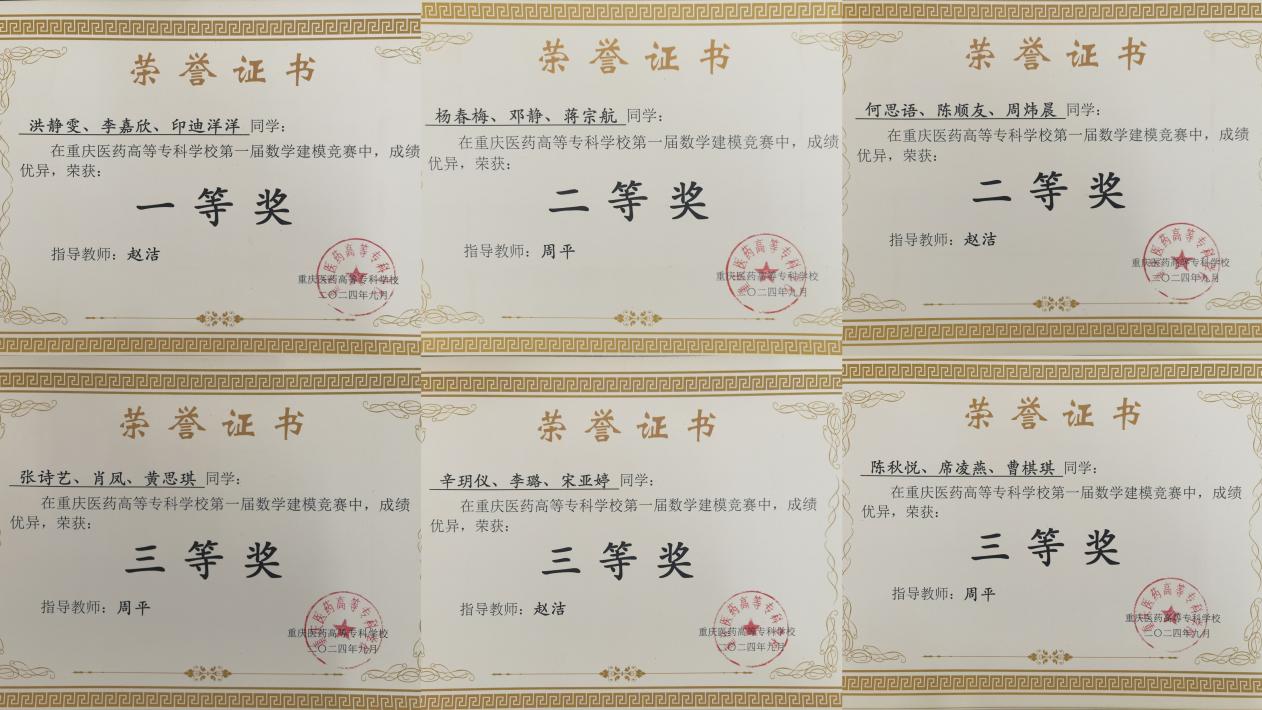 荣誉证书
洪静雯、李嘉欣、印迪洋洋 同学：
在重庆医药高等专科学校第一届数学建模竞赛中，成绩
优异，荣获：
一等奖
指导教师：赵洁
重庆医药高等专科学校
二〇二四年九月
荣誉证书
杨春梅、邓静、蒋宗航 同学：
在重庆医药高等专科学校第一届数学建模竞赛中，成绩
优异，荣获：
二等奖
指导教师：周平
重庆医药高等专科学校
二〇二四年九月
荣誉证书
何思语、陈顺友、周炜晨 同学：
在重庆医药高等专科学校第一届数学建模竞赛中，成绩
优异，荣获：
二等奖
指导教师：赵洁
重庆医药高等专科学校
二〇二四年九月
荣誉证书
张诗艺、肖凤、黄思琪 同学：
在重庆医药高等专科学校第一届数学建模竞赛中，成绩
优异，荣获：
三等奖
指导教师：周平
重庆医药高等专科学校
二〇二四年九月
荣誉证书
辛玥仪、李璐、宋亚婷 同学：
在重庆医药高等专科学校第一届数学建模竞赛中，成绩
优异，荣获：
三等奖
指导教师：赵洁
重庆医药高等专科学校
二〇二四年九月
荣誉证书
陈秋悦、席凌燕、曹棋琪 同学：
在重庆医药高等专科学校第一届数学建模竞赛中，成绩
优异，荣获：
三等奖
指导教师：周平
重庆医药高等专科学校
二〇二四年九月